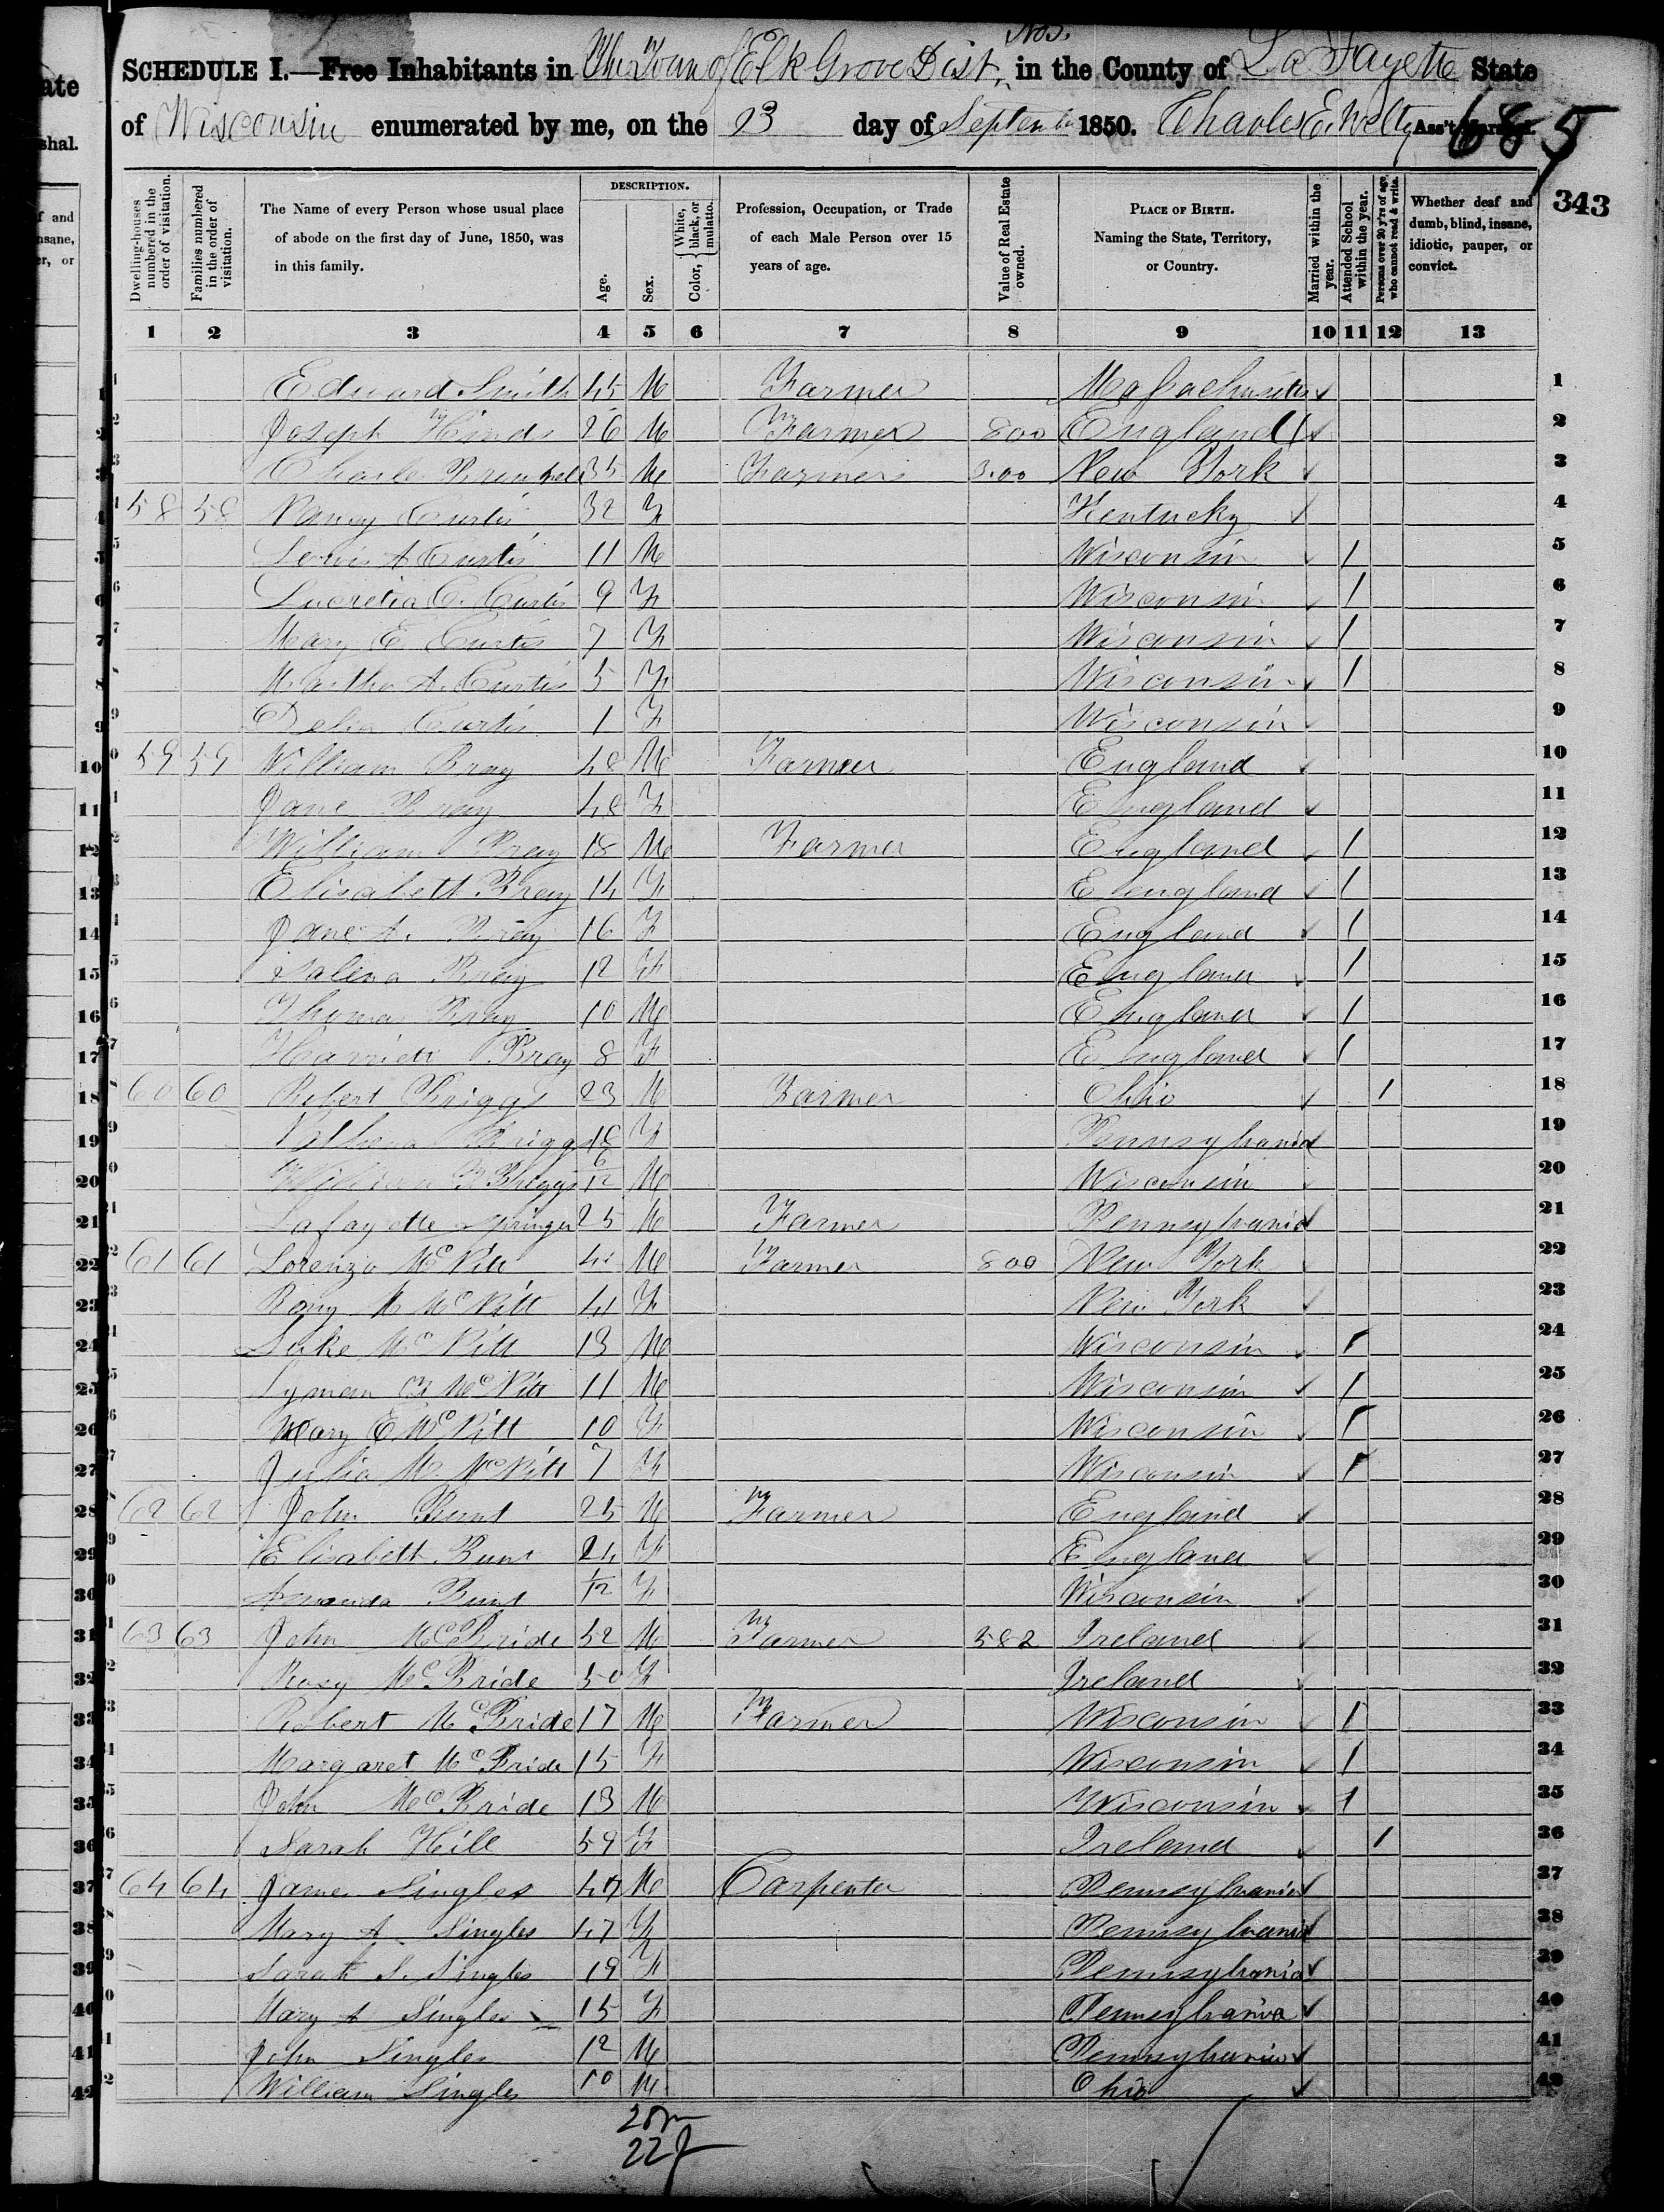 ate
SCHEDULE I.—Free Inhabitants in The Town of Elk Grove Dist. No 5. in the County of La Fayette State
of Wisconsin enumerated by me, on the 23 day of September 1850. Charles E. Welty Ass't Marshal.
685
shal.
343
f and
nsane,
er, or
DESCRIPTION.
Dwelling-houses numbered in the order of visitation.
Families numbered in the order of visitation.
The Name of every Person whose usual place of abode on the first day of June, 1850, was in this family.
Age.
Sex.
Color, { White, black, or mulatto.
Profession, Occupation, or Trade of each Male Person over 15 years of age.
Value of Real Estate owned.
PLACE OF BIRTH. Naming the State, Territory, or Country.
Married within the year.
Attended School within the year.
Persons over 20 y'rs of age who cannot read & write.
Whether deaf and dumb, blind, insane, idiotic, pauper, or convict.
1 2 3 4 5 6 7 8 9 10 11 12 13
1 Edward Smith 45 M Farmer Massachusetts 1
2 Joseph Hinds 26 M Farmer 800 England 2
3 Charles 35 M Farmer 300 New York 3
4 58 58 Nancy Curtis 32 F Kentucky 4
5 Lewis A Curtis 11 M Wisconsin / 5
6 Lucretia C. Curtis 9 F Wisconsin / 6
7 Mary E Curtis 7 F Wisconsin / 7
8 Martha A. Curtis 5 F Wisconsin / 8
9 Delia Curtis 1 F Wisconsin 9
10 59 59 William Bray 48 M Farmer England 10
11 Jane Bray 48 F England 11
12 William Bray 18 M Farmer England / 12
13 Elisabeth Bray 14 F England / 13
14 Jane A. Bray 16 F England / 14
15 Salena Bray 12 F England / 15
16 Thomas Bray 10 M England / 16
17 Harriett Bray 8 F England / 17
18 60 60 Robert Briggs 23 M Farmer Ohio / 18
19 Briggs 18 F Pennsylvania 19
20 William Briggs 6/12 M Wisconsin 20
21 Lafayette Springer 25 M Farmer Pennsylvania 21
22 61 61 Lorenzo McNitt M Farmer 800 New York 22
23 McNitt 41 F New York 23
24 Luke McNitt 13 M Wisconsin / 24
25 Lyman McNitt 11 M Wisconsin / 25
26 Mary E McNitt 10 F Wisconsin / 26
27 Julia M. McNitt 7 F Wisconsin / 27
28 62 62 John Bunt 25 M Farmer England 28
29 Elisabeth Bunt 24 F England 29
30 Amanda Bunt 1/12 F Wisconsin 30
31 63 63 John McBride 52 M Farmer 582 Ireland 31
32 Rosy McBride 50 F Ireland 32
33 Robert McBride 17 M Farmer Wisconsin / 33
34 Margaret McBride 15 F Wisconsin / 34
35 John McBride 13 M Wisconsin / 35
36 Sarah Hill 59 F Ireland / 36
37 64 64 James Singles 47 M Carpenter Pennsylvania 37
38 Mary A. Singles 47 F Pennsylvania 38
39 Sarah S. Singles 19 F Pennsylvania 39
40 Mary A Singles 15 F Pennsylvania 40
41 John Singles 12 M Pennsylvania 41
42 William Singles 10 M Ohio 42
20m
22f